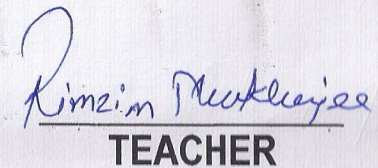 Rimzim Mukherjee
TEACHER